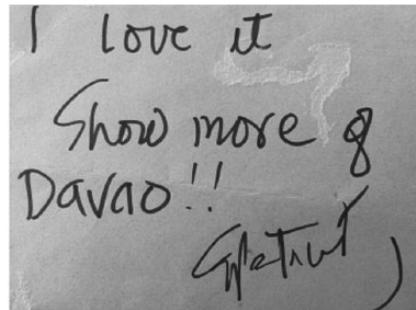 I love it
Show more of
Davao!!